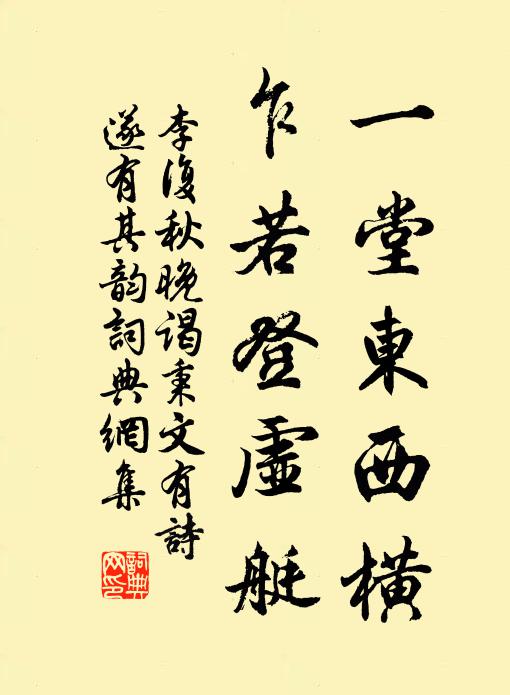 一堂東西橫
乍若登虛艇
李復秋晚謁秉文有詩
遂有其韵詞典網集
詞典
网印